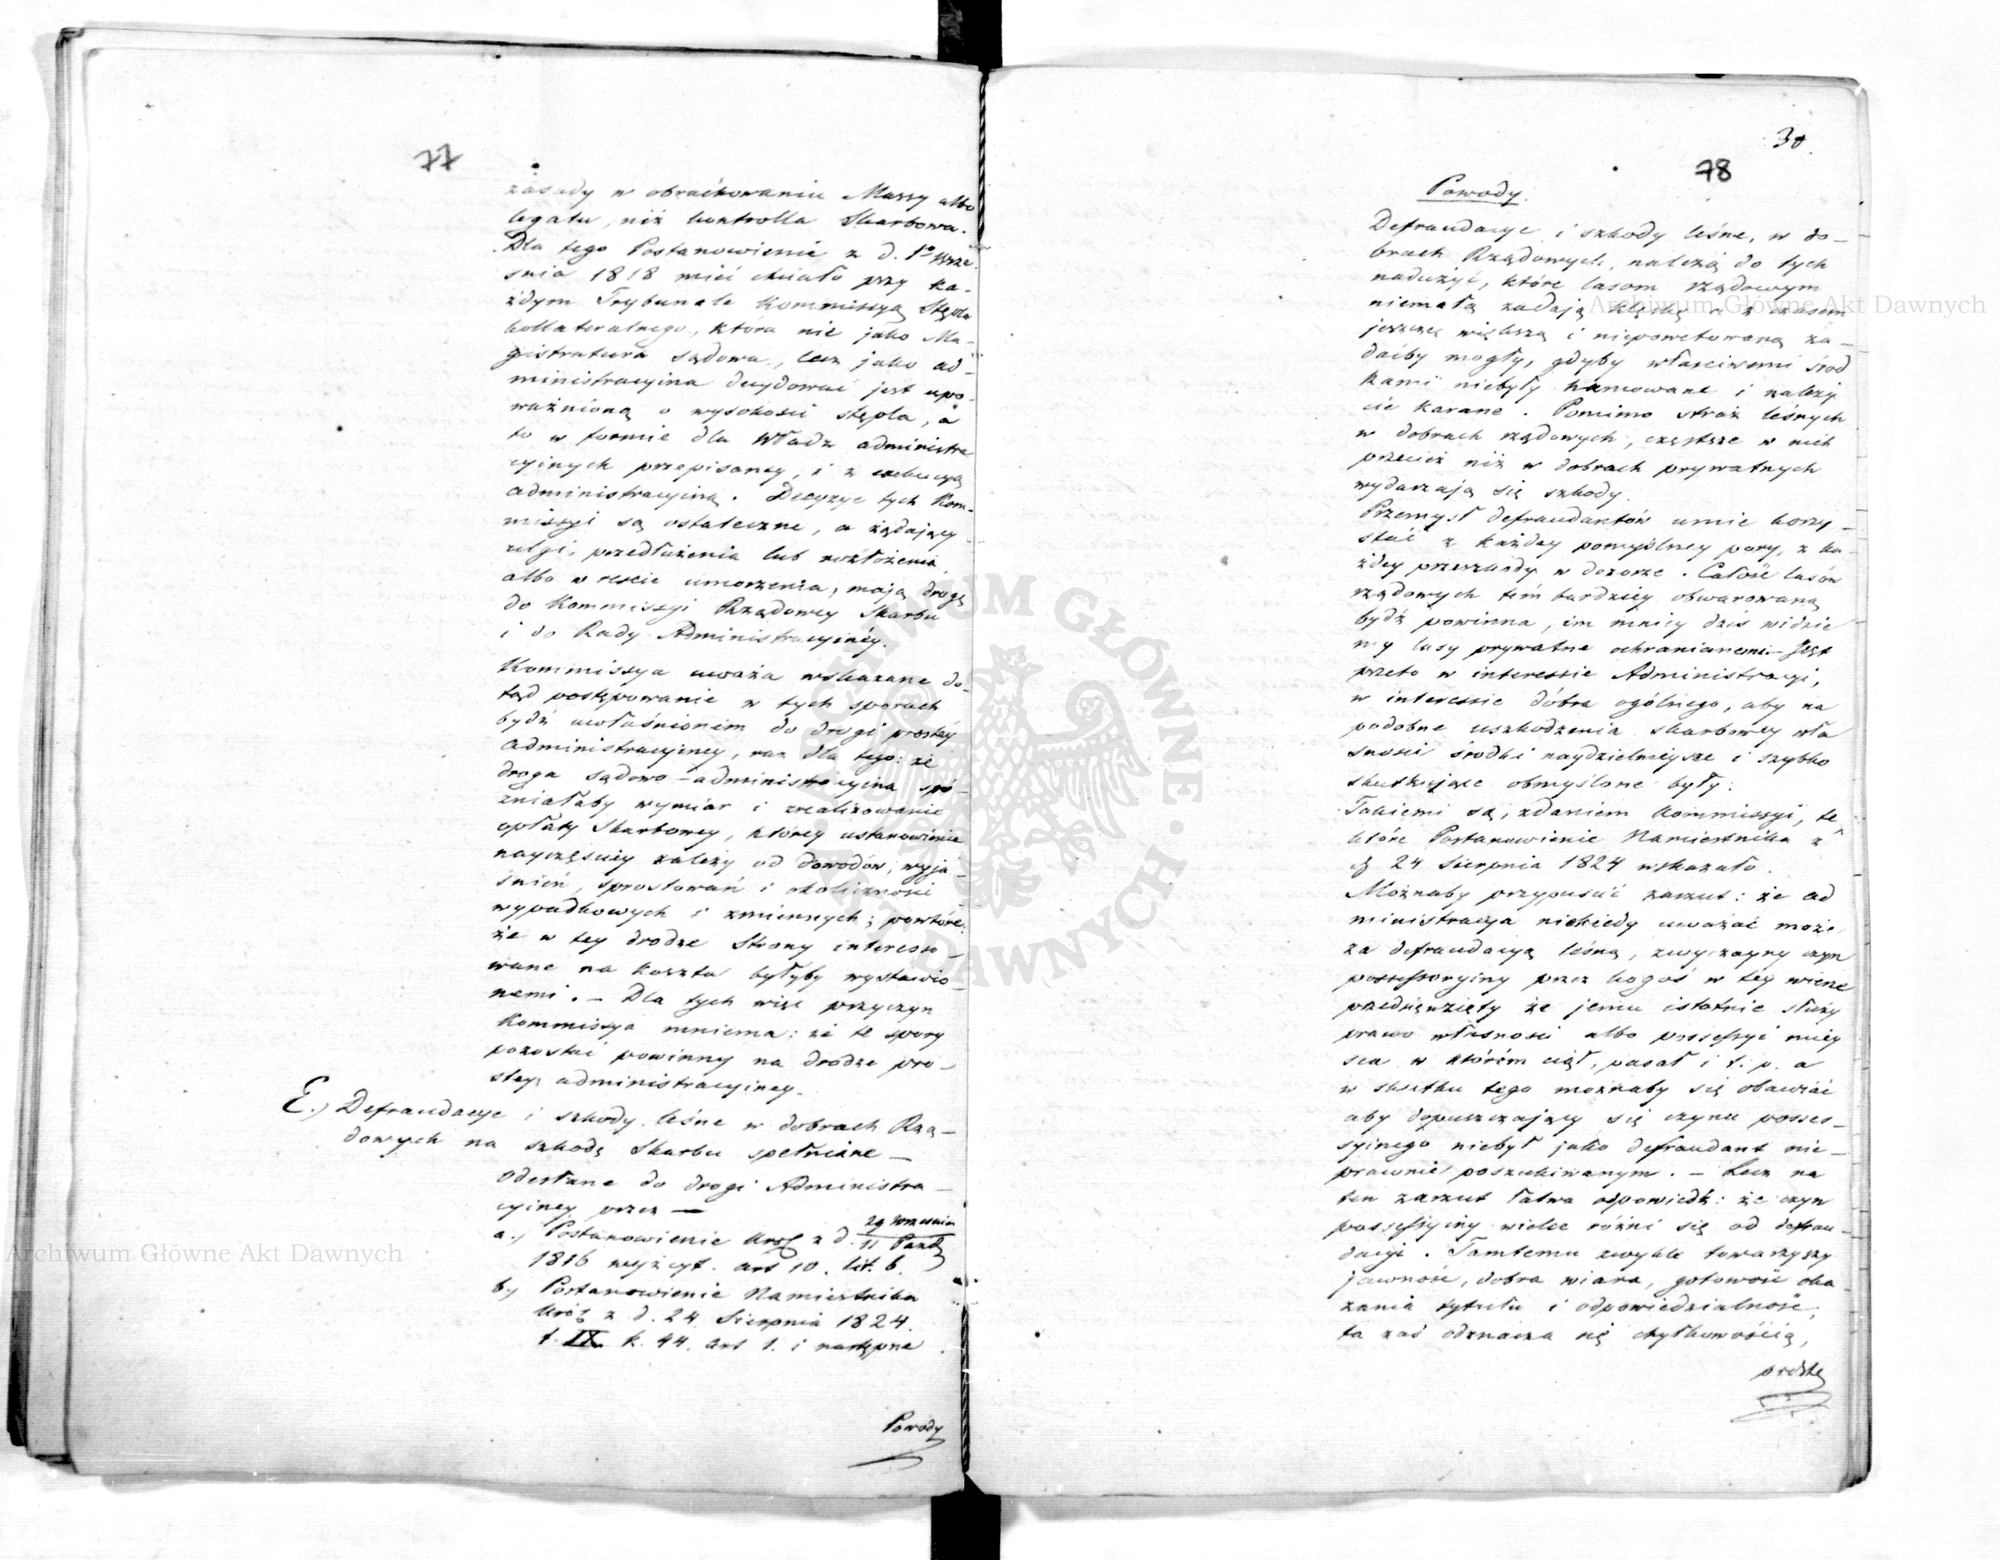 77
zasady w obraćhowaniu Massy albo
legatu, niż kontrolla Skarbowa.
Dla tego Postanowienie z d. 1º Wrze-
śnia 1818 mieć chciało przy ka-
żdym Trybunale Kommissyą Stępla
kollateralnego, która nie jako Ma-
gistratura sądowa, lecz jako ad-
ministracyjna decydować jest upo-
ważnioną o wysokości stępla, a
to w formie dla Władz administra
cyinych przepisaney, i z exekucyą
administracyiną. Decyzye tych Kom-
missyi są ostateczne, a żądający
ulgi, przedłużenia lub rozłożenia
albo w reście umorzenia, mają drogę
do Kommissyi Rządowey Skarbu
i do Rady Administracyinéy.
Kommissya uważa wskazane do-
tąd postępowanie w tych sporach
bydź uwłaśnionem do drogi prostéy
administracyiney, raz dla tego: że
droga sądowo-administracyina spó-
źniałaby wymiar i zrealizowanie
opłaty Skarbowey, którey ustanowienie
nayczęściey zależy od dowodów, wyja-
śnień, sprostowań i okoliczności
wypadkowych i zmiennych; powtóre:
że w tey drodze Strony interesso-
wane na koszta byłyby wystawio-
nemi. – Dla tych więc przyczyn
Kommissya mniema: że te spory
pozostać powinny na drodze pro-
stey administracyiney.
E.) Defraudacye i szkody leśne w dobrach Rzą-
dowych na szkodę Skarbu spełniane –
odesłane do drogi Administra-
cyiney przez —
a.) Postanowienie Król z d. 29 Września
11 Paźdź
1816 wyż cyt. art 10. lit. b.
b.) Postanowienie Namiestnika
Król z d. 24 Sierpnia 1824.
t. IX. k. 44. art 1. i następne.
Powody
30.
78
Powody.
Defraudacye i szkody leśne, w do-
brach Rządowych, należą do tych
nadużyć, które lasom rządowym
niemałą zadają klęskę a z czasem
jeszcze większą i niepowetowaną za-
daćby mogły, gdyby właściwemi środ
kami niebyły hamowane i należy
cie karane. Pomimo straż leśnych
w dobrach rządowych, częstsze w nich
przecież niż w dobrach prywatnych
wydarzają się szkody.
Przemysł defraudantów umie korzy-
stać z każdey pomyślney pory, z ka-
żdey przeszkody w dozorze. Całość lasów
rządowych tém bardziey obwarowaną
bydź powinna, im mniey dziś widzie
my lasy prywatne ochranianemi. – Jest
przeto w interessie Administracyi,
w interessie dobra ogólnego, aby na
podobne uszkodzenia skarbowey wła
sności środki naydzielnieysze i szybko
skutkujące obmyślone były:
Takiemi są, zdaniem Kommissyi, te
które Postanowienie Namiestnika z
d. 24 Sierpnia 1824 wskazało.
Możnaby przypuścić zarzut: że ad
ministracya niekiedy uważać może
za defraudacyą leśną, zwyczayny czyn
possessoryiny przez kogoś w tey wierze
przedsięwzięty że jemu istotnie służy
prawo własności albo possessyi miey
sca w którém ciął, pasał i t. p. a
w skutku tego możnaby się obawiać
aby dopuszczający się czynu posses-
syinego niebył jako defraudant nie-
prawnie poszukiwanym. – Lecz na
ten zarzut łatwa odpowiedź: że czyn
possessyiny wielce różni się od defrau-
dacyi. Tamtemu zwykle towarzyszy
jawność, dobra wiara, gotowość oka
zania tytułu i odpowiedzialność,
ta zaś odznacza się chyłkowością,
Archiwum Główne Akt Dawnych
Archiwum Główne Akt Dawnych
ARCHIWUM GŁÓWNE AKT DAWNYCH